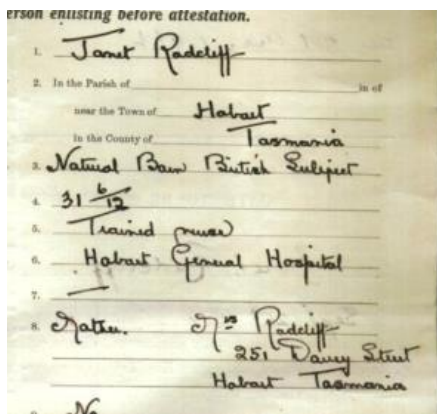 erson enlisting before attestation.
1. Janet Radcliff
2. In the Parish of in of
near the Town of Hobart
in the County of Tasmania
3. Natural Born British Subject
4. 31 6/12
5. Trained nurse
6. Hobart General Hospital
7. —
8. Mother. Mrs Radcliff
251 Davey Street
Hobart Tasmania
No